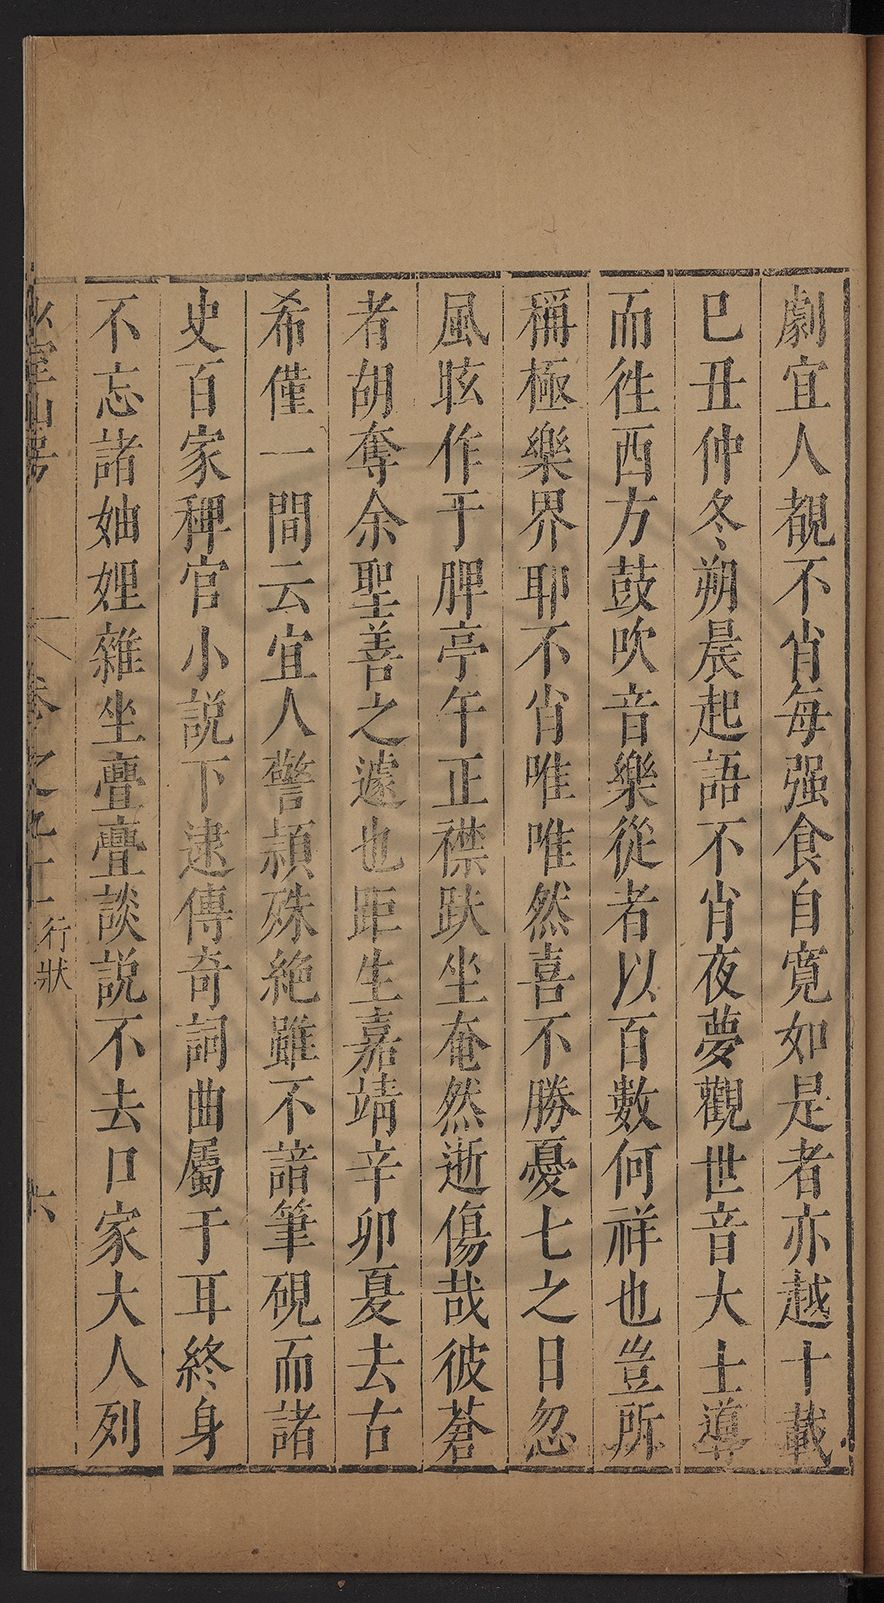 劇宜人覩不肖每强食自寬如是者亦越十載
巳丑仲冬朔晨起語不肖夜夢觀世音大士導
而徃西方鼓吹音樂從者以百數何祥也豈所
稱極樂界耶不肖唯唯然喜不勝憂七之日忽
風眩作于脾亭午正襟趺坐奄然逝傷哉彼蒼
者胡奪余聖善之遽也距生嘉靖辛卯夏去古
希僅一間云宜人警頴殊絶雖不諳筆硯而諸
史百家稗官小説下逮傳竒詞曲屬于耳終身
不忘諸妯娌雜坐亹亹談説不去口家大人列
山房
卷之
行狀
六